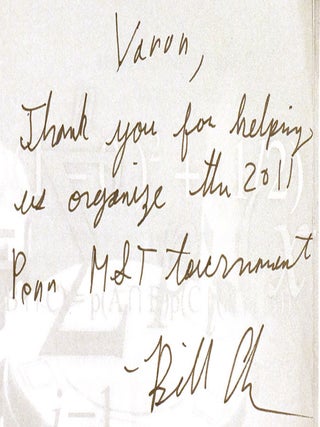 Varun,
Thank you for helping
us organize the 2011
Penn M&T tournament
- Bill